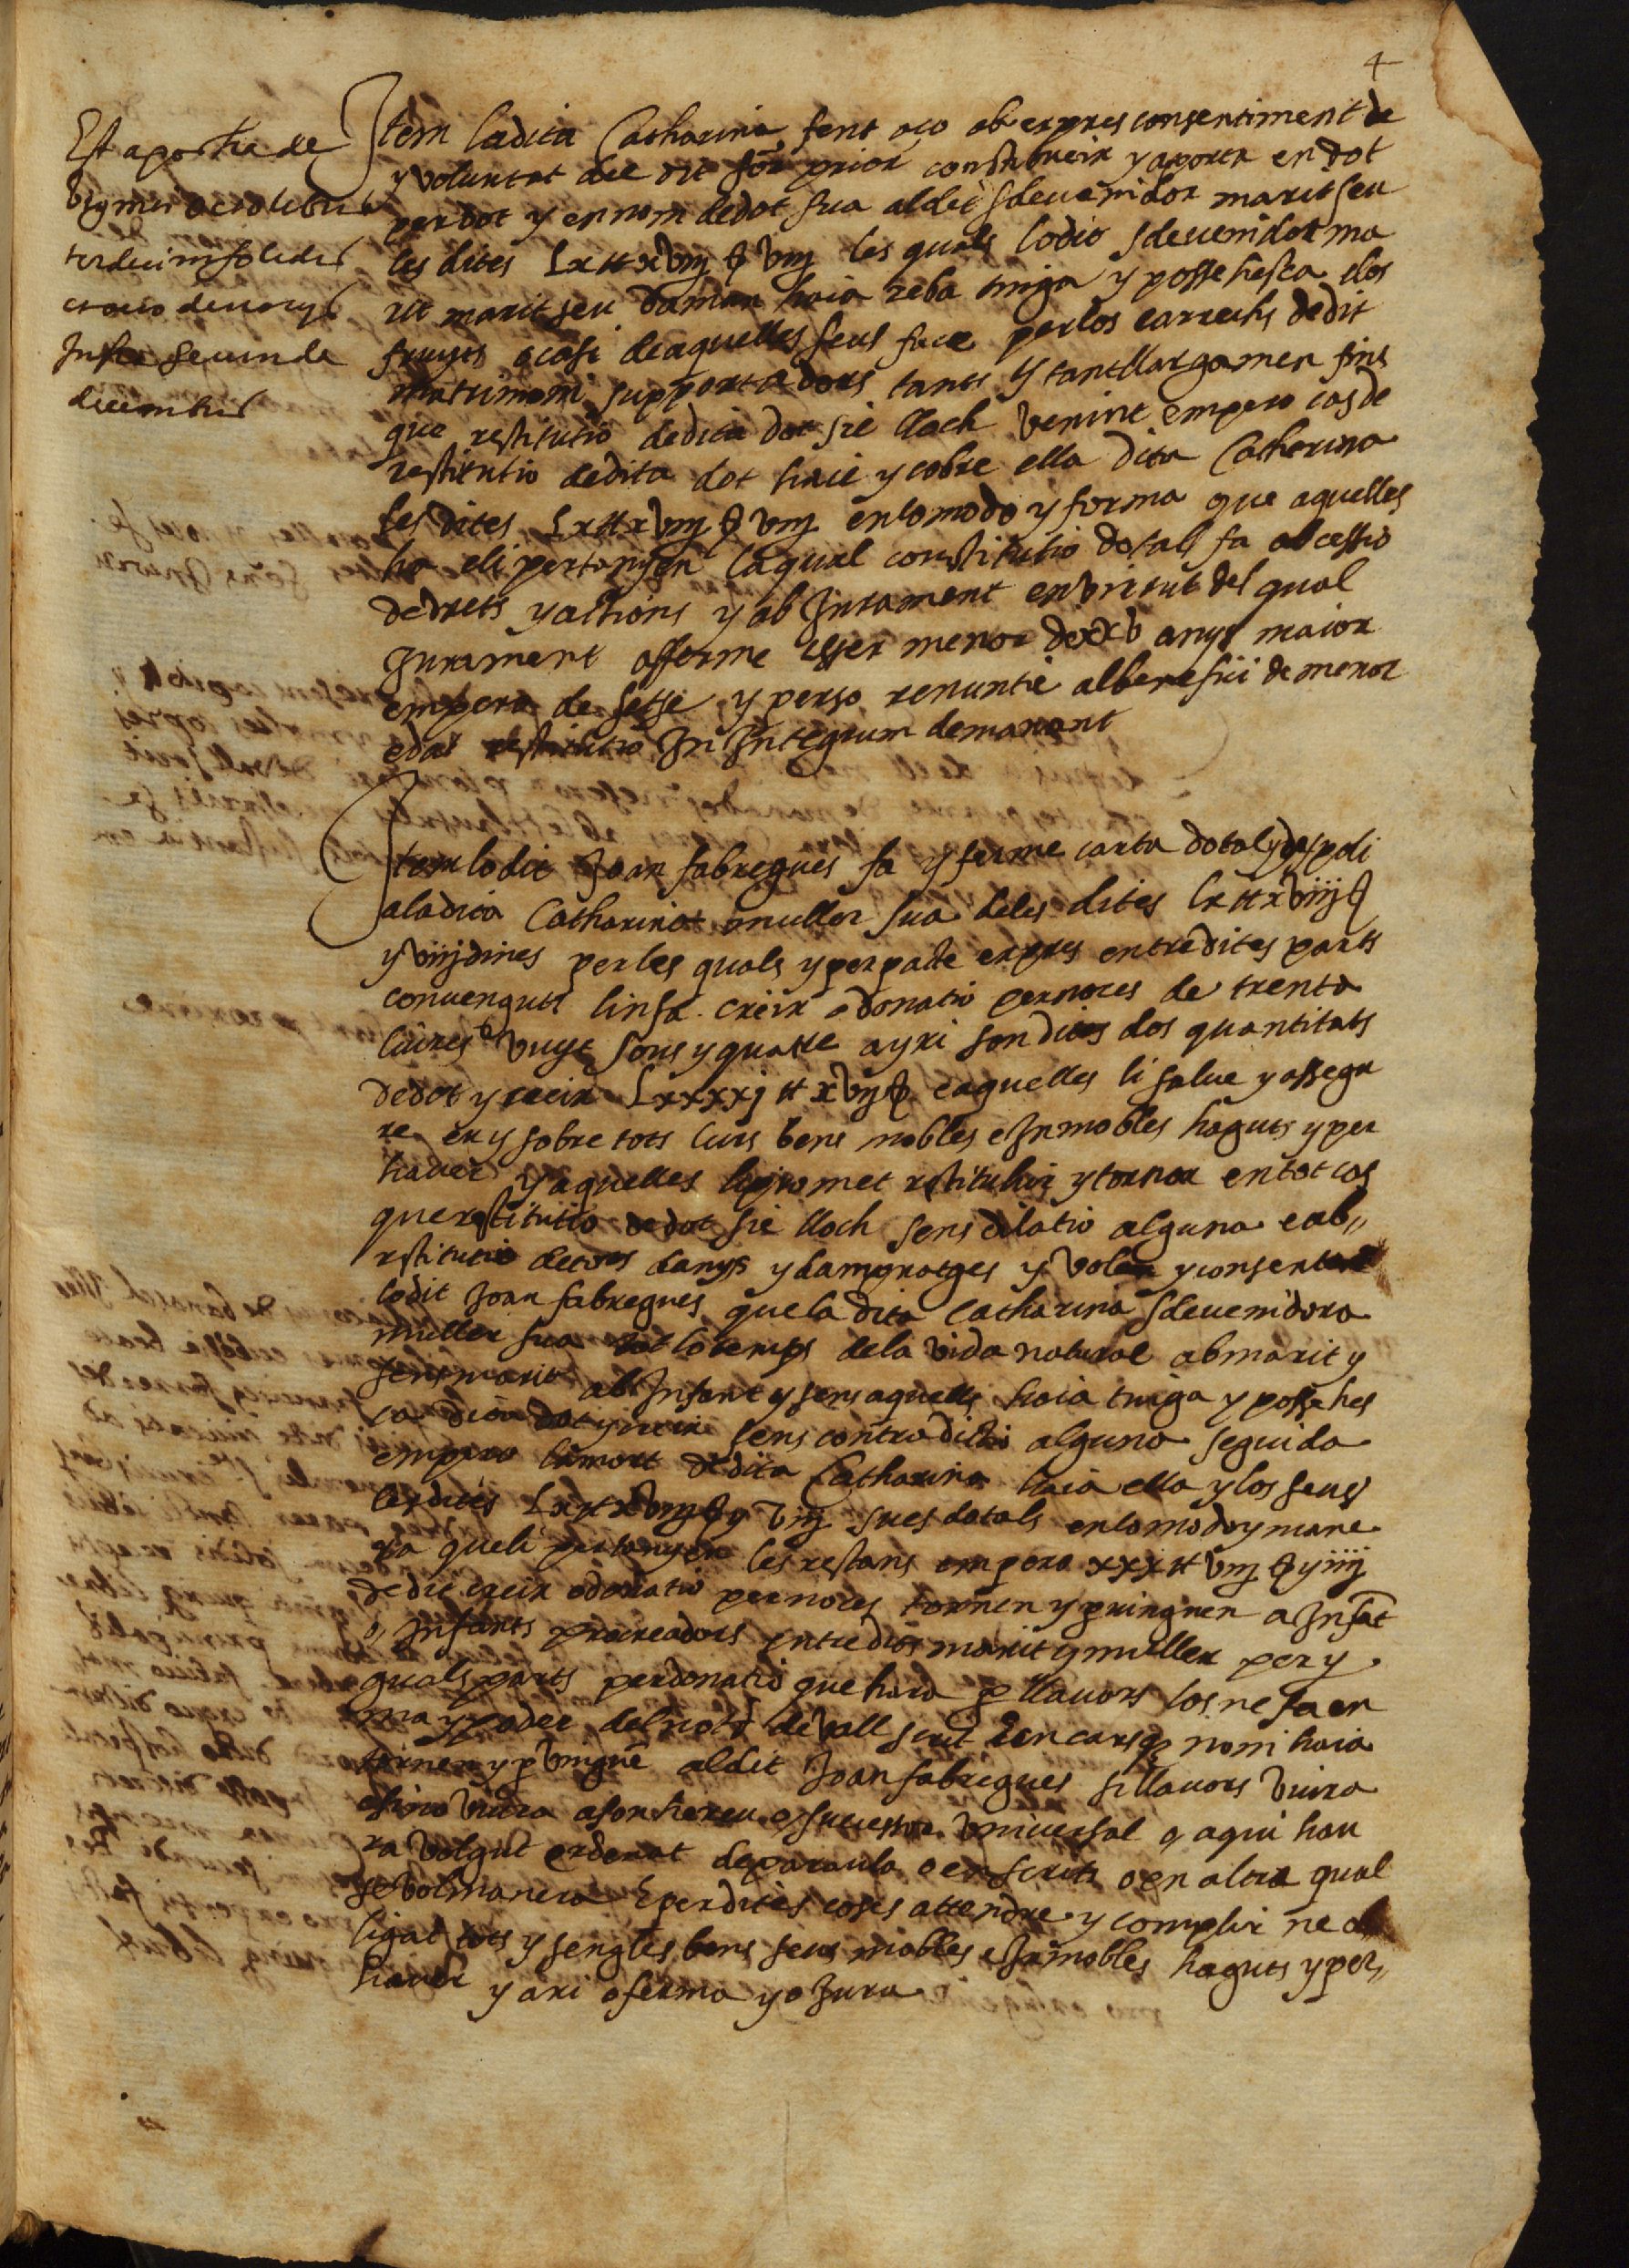 4
Est apocha de
viginti octo libris
tresdecim solidis
Infra secunda
decembris
Item la dita Catharina fent aço ab expres consentiment de
y voluntat del dit sor prior constitueix y aporta en dot
per dot y en nom de dot sua al dit sdevenidor marit seu
les dites Lxtt xviiij ß viiij les quals lo dit sdevenidor ma
rit marit seu daman haia reba tinga y possehesca e los
fruyts de aquelles seus face per los carrechs de dit
matrimoni supportadors tants y tant llargamen fins
que restitutio de dita dot sie lloch venint empero cas de
restitutio de dita dot haie y cobre ella dita Catherina
les dites Lxtt xviiij ß viiij en lo modo y forma que aquelles
ha e li pertanyen la qual constitutio dotal fa ab cessio
de drets y actions y ab Jurament en virtut del qual
Jurament afferme esser menor de xxv anys maior
empero de setse y perso renuntie al benefici de menor
edat restitutio In Integrum demanant
Item lo dit Joan fabregues fa y ferme carta dotal y de spoli
a la dita Catharina muller sua de les dites lxtt xviiij ß
y viiij dines per les quals y per pacte expres entre dites parts
convengut li n fa creix o donatio per noces de trenta
liures vuyt sous y quatre ayxi son dites dos quantitats
de dot y creix Lxxxxj tt xvij ß e aquelles li salve y assegu
re en y sobre tots lurs bens mobles e Inmobles haguts y per
haver y aquelles li promet restituhir y tornar en tot cas
que restitutio de dot sie lloch sens dilatio alguna e ab
restitutio de tots danys y damnatges y volen y consent
lo dit Joan fabregues que la dita Catharina sdevenidora
muller sua tot lo temps de la vida natural ab marit y
sens marit ab Infant y sens aquells haia tinga y possehes
ca dita dot y creix sens contradictio alguna seguida
empero la mort de dita Catharina haia ella y los seus
les dites Lxtt xviiij ß y viiij sues dotals en lo modo y mane
ra que li pertanyen les restans empero xxx tt viij ß y iiij
de dit creix o donatio per noces tornen y pringuen a Infāt
o Infants procreadors entre dits marit y muller per y
guals parts per donatio que hara p llavors los ne fa en
ma y poder del notī devall scrit E en cars q noni haia
tornen y p vingue al dit Joan fabregues si llavors viura
e si no viura a son hereu o successor universal o a qui hau
ra volgut ordenat de paraula o en scrits o en altra qual
sevol manera E per dites coses attendre y complir ne ob
ligat tots y sengles bens seus mobles e Inmobles haguts y per
haver y axi o ferma y o Jura